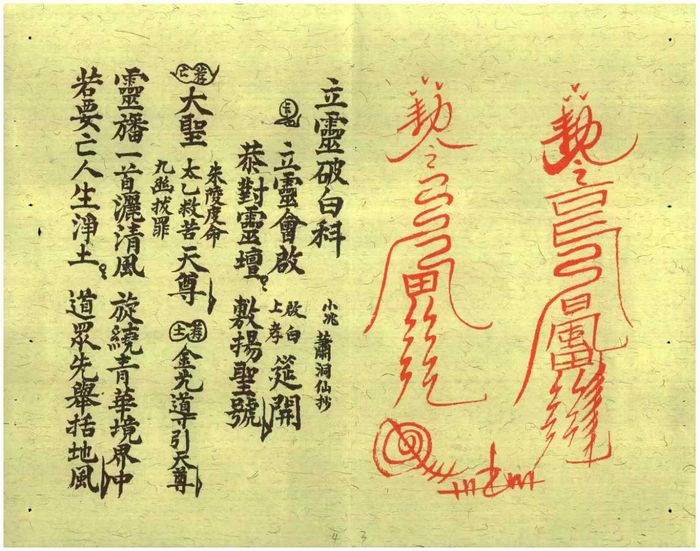 立靈破白科 小兆 蕭洞仙抄
立靈會啟 啟白 上孝 筵開
恭對靈壇 敷揚聖號
大聖 朱陵度命 太乙救苦 九幽拔罪 天尊 金光導引天尊
靈旛一首灑清風 旋繞青華境界中
若要亡人生淨土 道眾先舉括地風
4 3